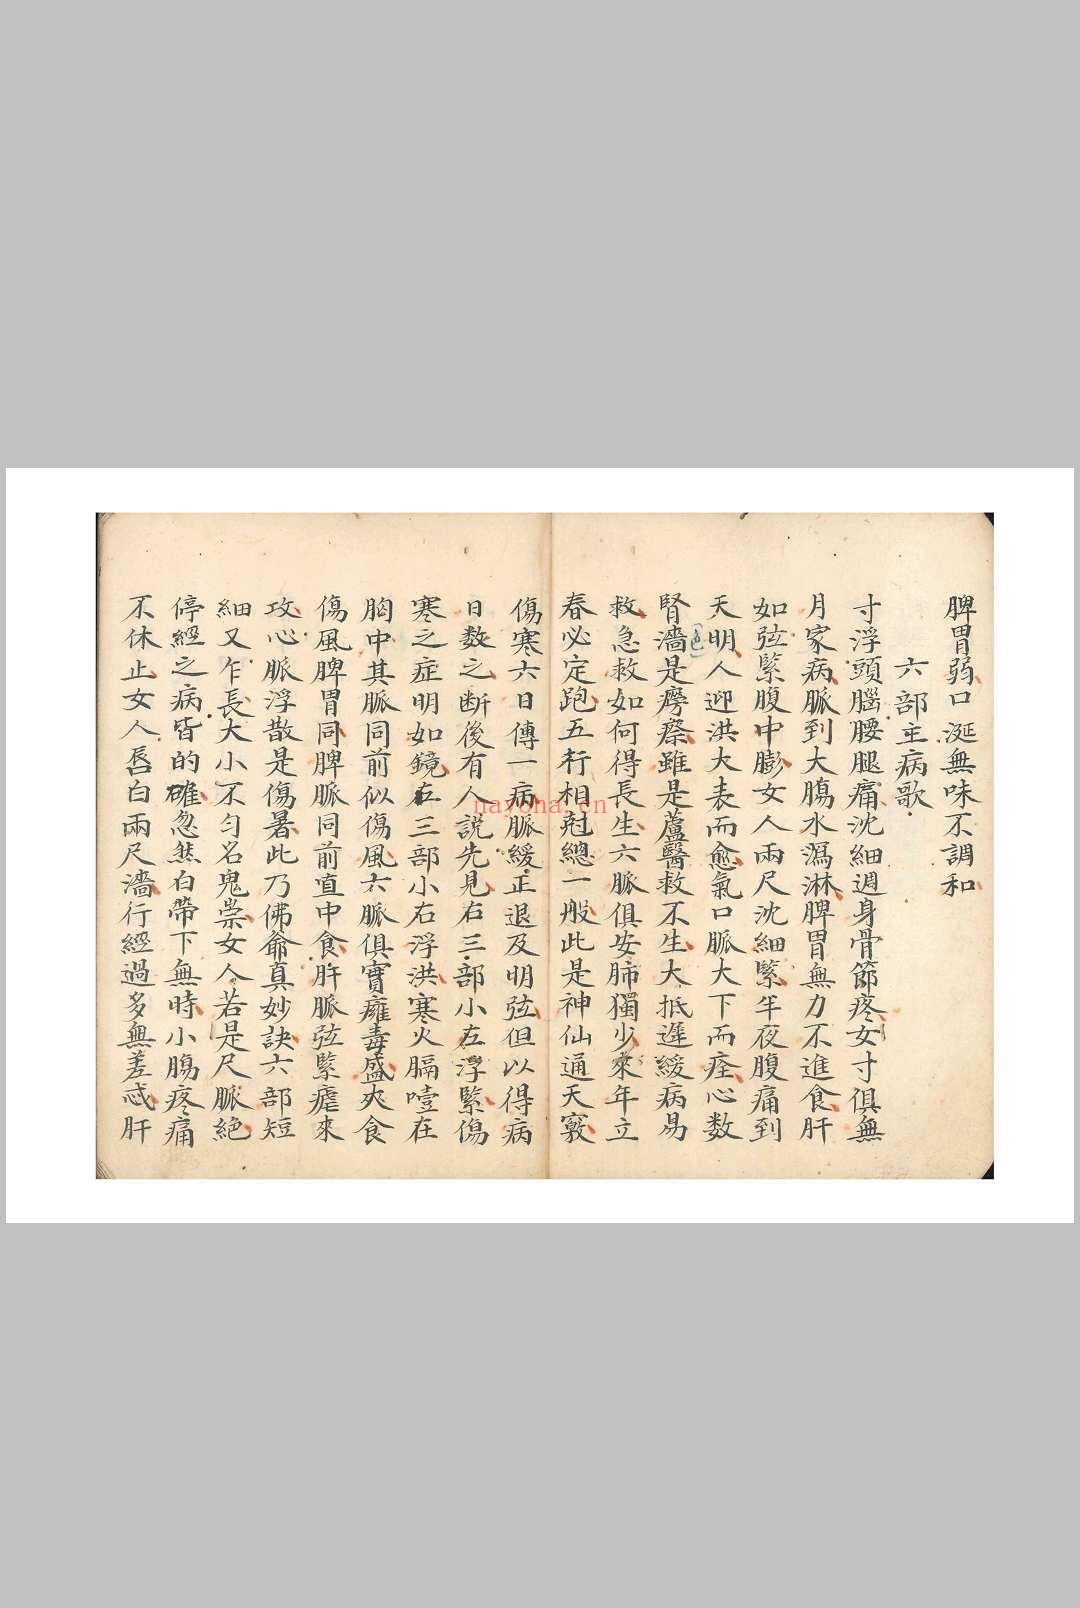 脾胃弱口涎無味不調和
六部主病歌
寸浮頭腦腰腿痛沈細週身骨節疼女寸俱無
月家病脈到大腸水瀉淋脾胃無力不進食肝
如弦緊腹中膨女人兩尺沈細緊半夜腹痛到
天明人迎洪大表而愈氣口脈大下而痊心数
腎濇是癆瘵雖是蘆醫救不生大抵遲緩病易
救急救如何得長生六脈俱安肺獨少來年立
春必定跑五行相尅總一般此是神仙通天竅
傷寒六日傳一病脈緩正退及明弦但以得病
日数之断後有人説先見右三部小左浮緊傷
寒之症明如鏡左三部小右浮洪寒火膈噎在
胸中其脈同前似傷風六脈俱實癰毒盛夾食
傷風脾胃同脾脈同前直中食肝脈弦緊瘧來
攻心脈浮散是傷暑此乃佛爺真妙訣六部短
細又乍長大小不匀名鬼祟女人若是尺脈絶
停經之病皆的確忽然白帶下無時小腸疼痛
不休止女人唇白兩尺濇行經過多無差忒肝
navoha.cn